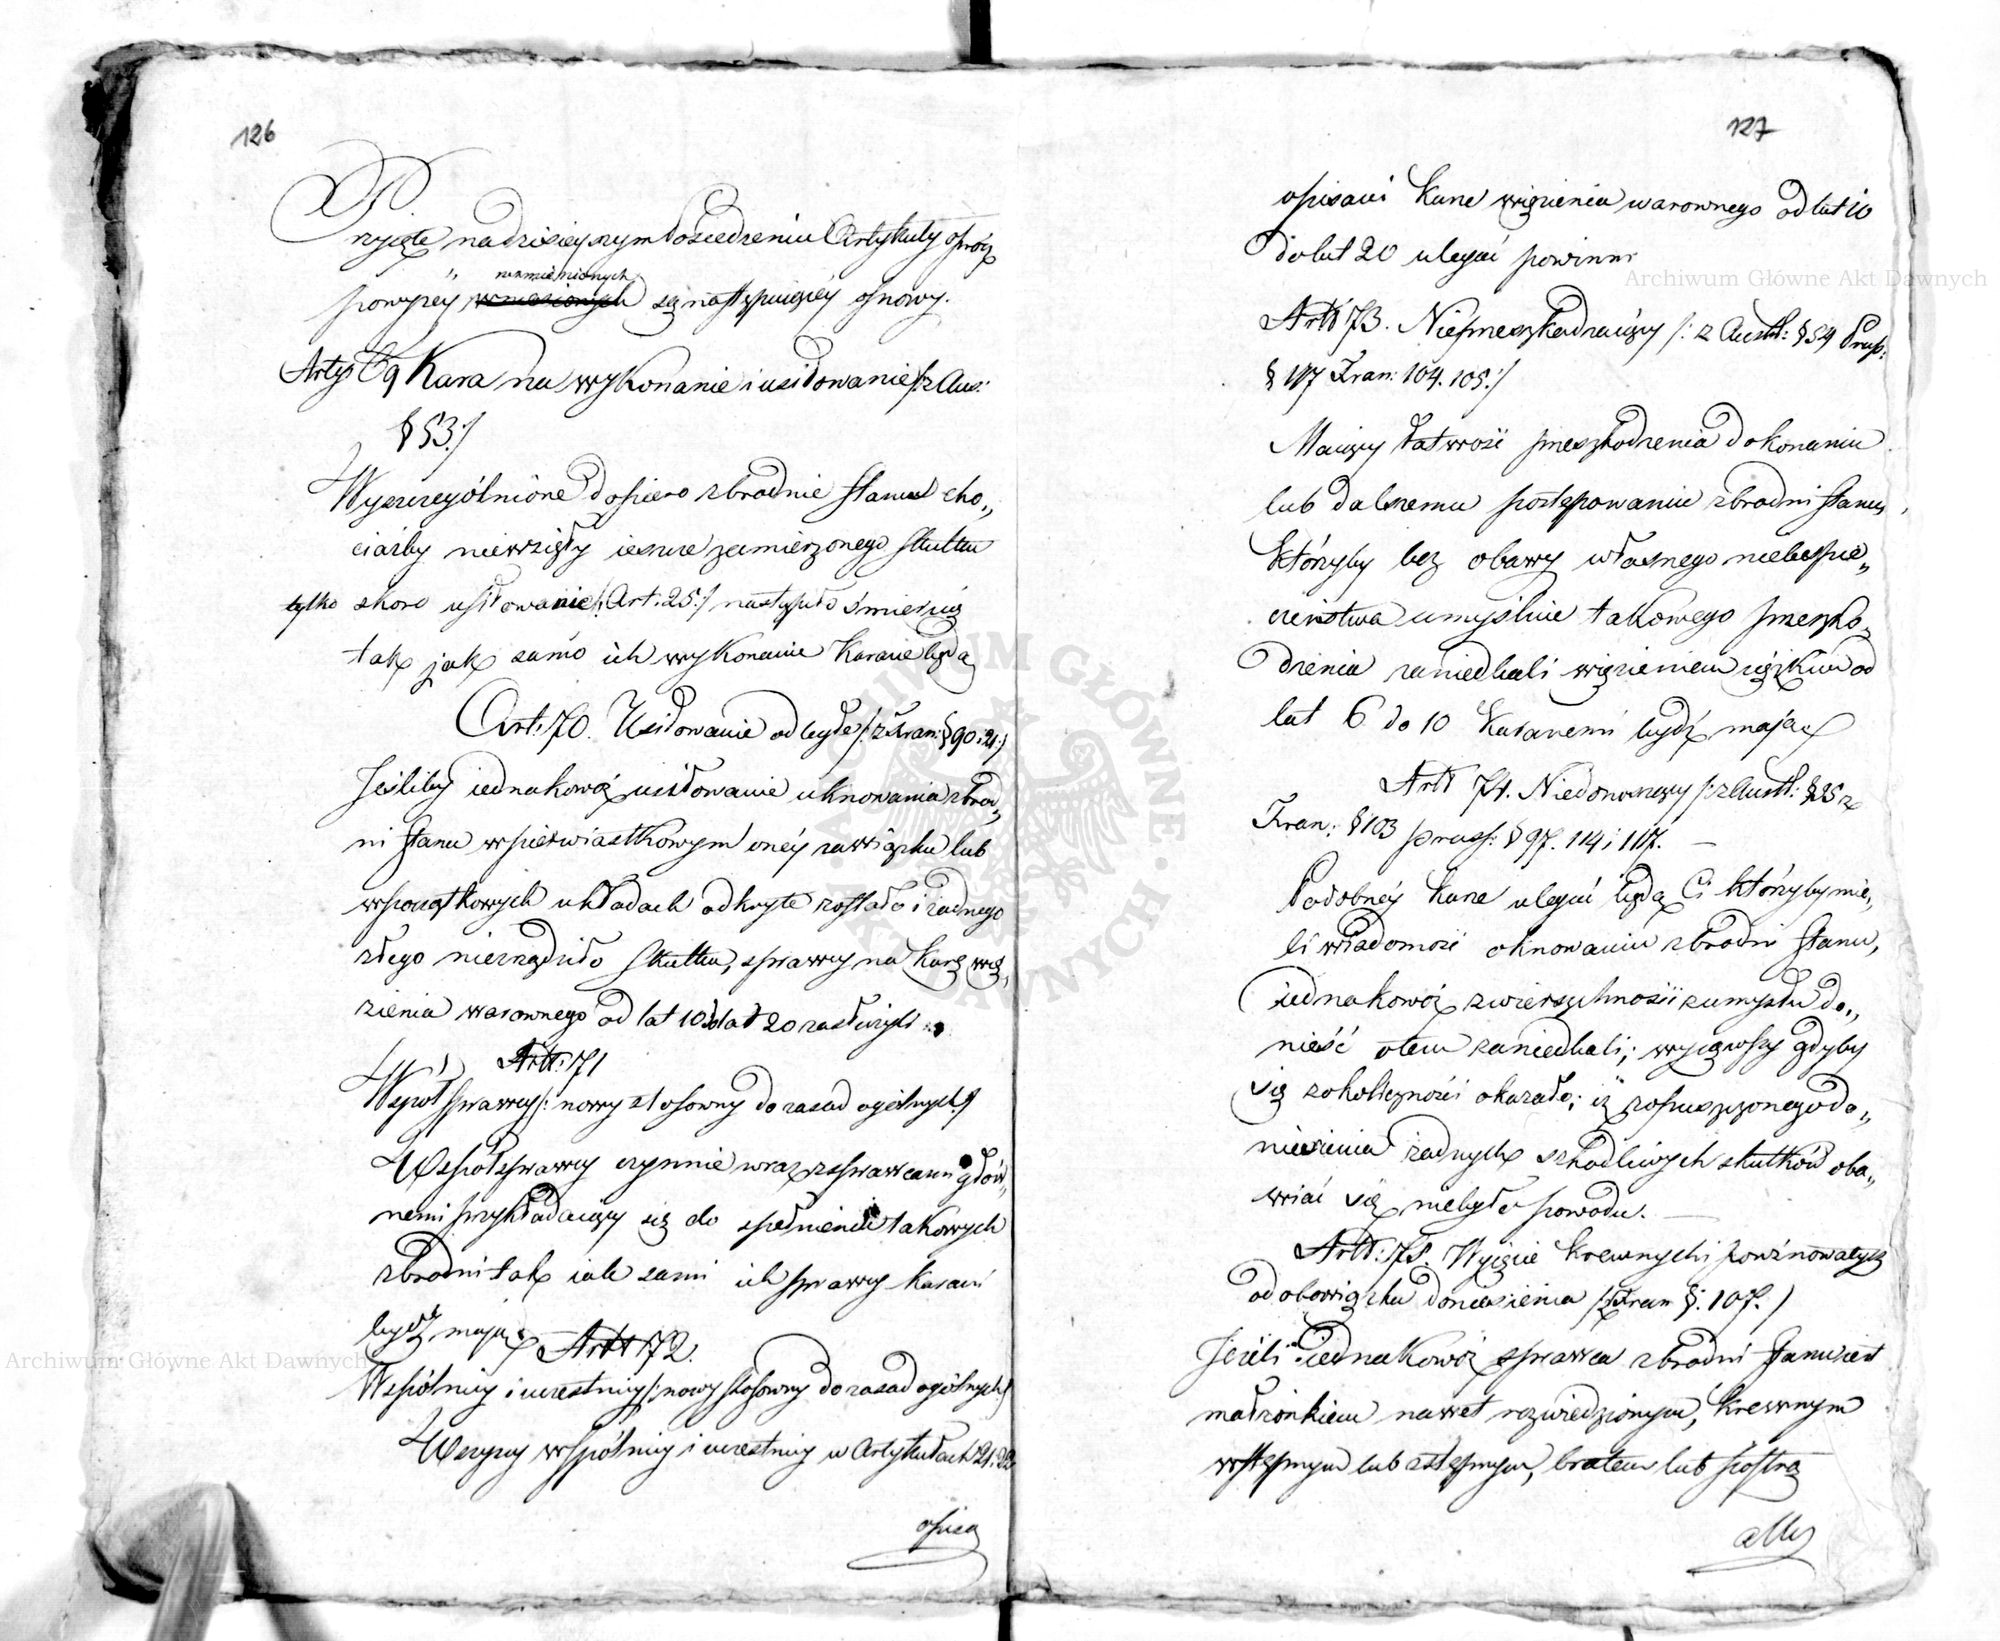 126
Przyięte na dzisieyszym Posiedzeniu Artykuły oprócz
" nadmienionych
powyżey wzmienionych są następuiącéy osnowy.
Artyt 69 Kara na wykonanie i usiłowanie /: z Aus:
§ 53:/
Wyszczególnione dopiero zbrodnie stanu cho„
ciażby niewzięły ieszcze zamierzonego skutku
tylko skoro usiłowanie /: Art: 25:/ nastąpiło śmiercią
tak jak samo ich wykonanie karane będą
Art: 70. Usiłowanie odległe /: z Fran: § 90:21:/
Jeśliby iednakowoż usiłowanie uknowania zbrod„
ni stanu w pierwiastkowym onéy zawiązku lub
w początkowych układach odkryte zostało i żadnego
złego niezrządziło skutku, sprawcy na karę wię„
zienia warownego od lat 10 do lat 20 zasłużyli.
Artt: 71
Współsprawcy /: nowy stosowny do zasad ogólnych:/
Współsprawcy czynnie wraz z sprawcami głów„
nemi przykładaiący się do spełnienia takowych
zbrodni tak iak sami ich sprawcy karani
bydź mają. Artt 72.
Wspólnicy i uczestnicy /: nowy stosowny do zasad ogólnych:/
Wszyscy wspólnicy i uczestnicy w Artykułach 21. 22
opisa
127
opisani karze więzienia warownego od lat 10
do lat 20 ulegać powinni
Artt 73. Nieprzeszkadzaiący /: z Austr: § 54 Prus:
§ 117 Fran: 104. 105:/
Maiący łatwość przeszkodzenia dokonaniu
lub dalszemu postępowaniu zbrodni stanu,
którzyby bez obawy własnego niebespie„
czeństwa umyślnie takowego przeszko„
dzenia zaniedbali więzieniem ciężkim od
lat 6 do 10 karanemi bydź mają
Artt 74. Niedonoszący /: z Austr: § 55 z
Fran: § 103 prus: § 97. 114 i 117. —
Podobnéy karze ulegać będą Ci którzyby mie„
li wiadomość o knowaniu zbrodni stanu,
iednakowoż zwierzchności z umysłu do„
nieść o tem zaniedbali; wyiąwszy gdyby
się z okoliczności okazało; iż z opuszczonego do„
niesienia żadnych szkodliwych skutków oba„
wiać się niebyło powodu. —
Artt: 75. Wyięcie krewnych i powinowatych
od obowiązku doniesienia /: z Fran §. 107. /
Jeżeli iednakowoż sprawca zbrodni stanu iest
małżonkiem nawet rozwiedzionym, krewnym
wstępnym lub zstępnym, bratem lub siostrą
albo
Archiwum Główne Akt Dawnych
Archiwum Główne Akt Dawnych
ARCHIWUM GŁÓWNE AKT DAWNYCH